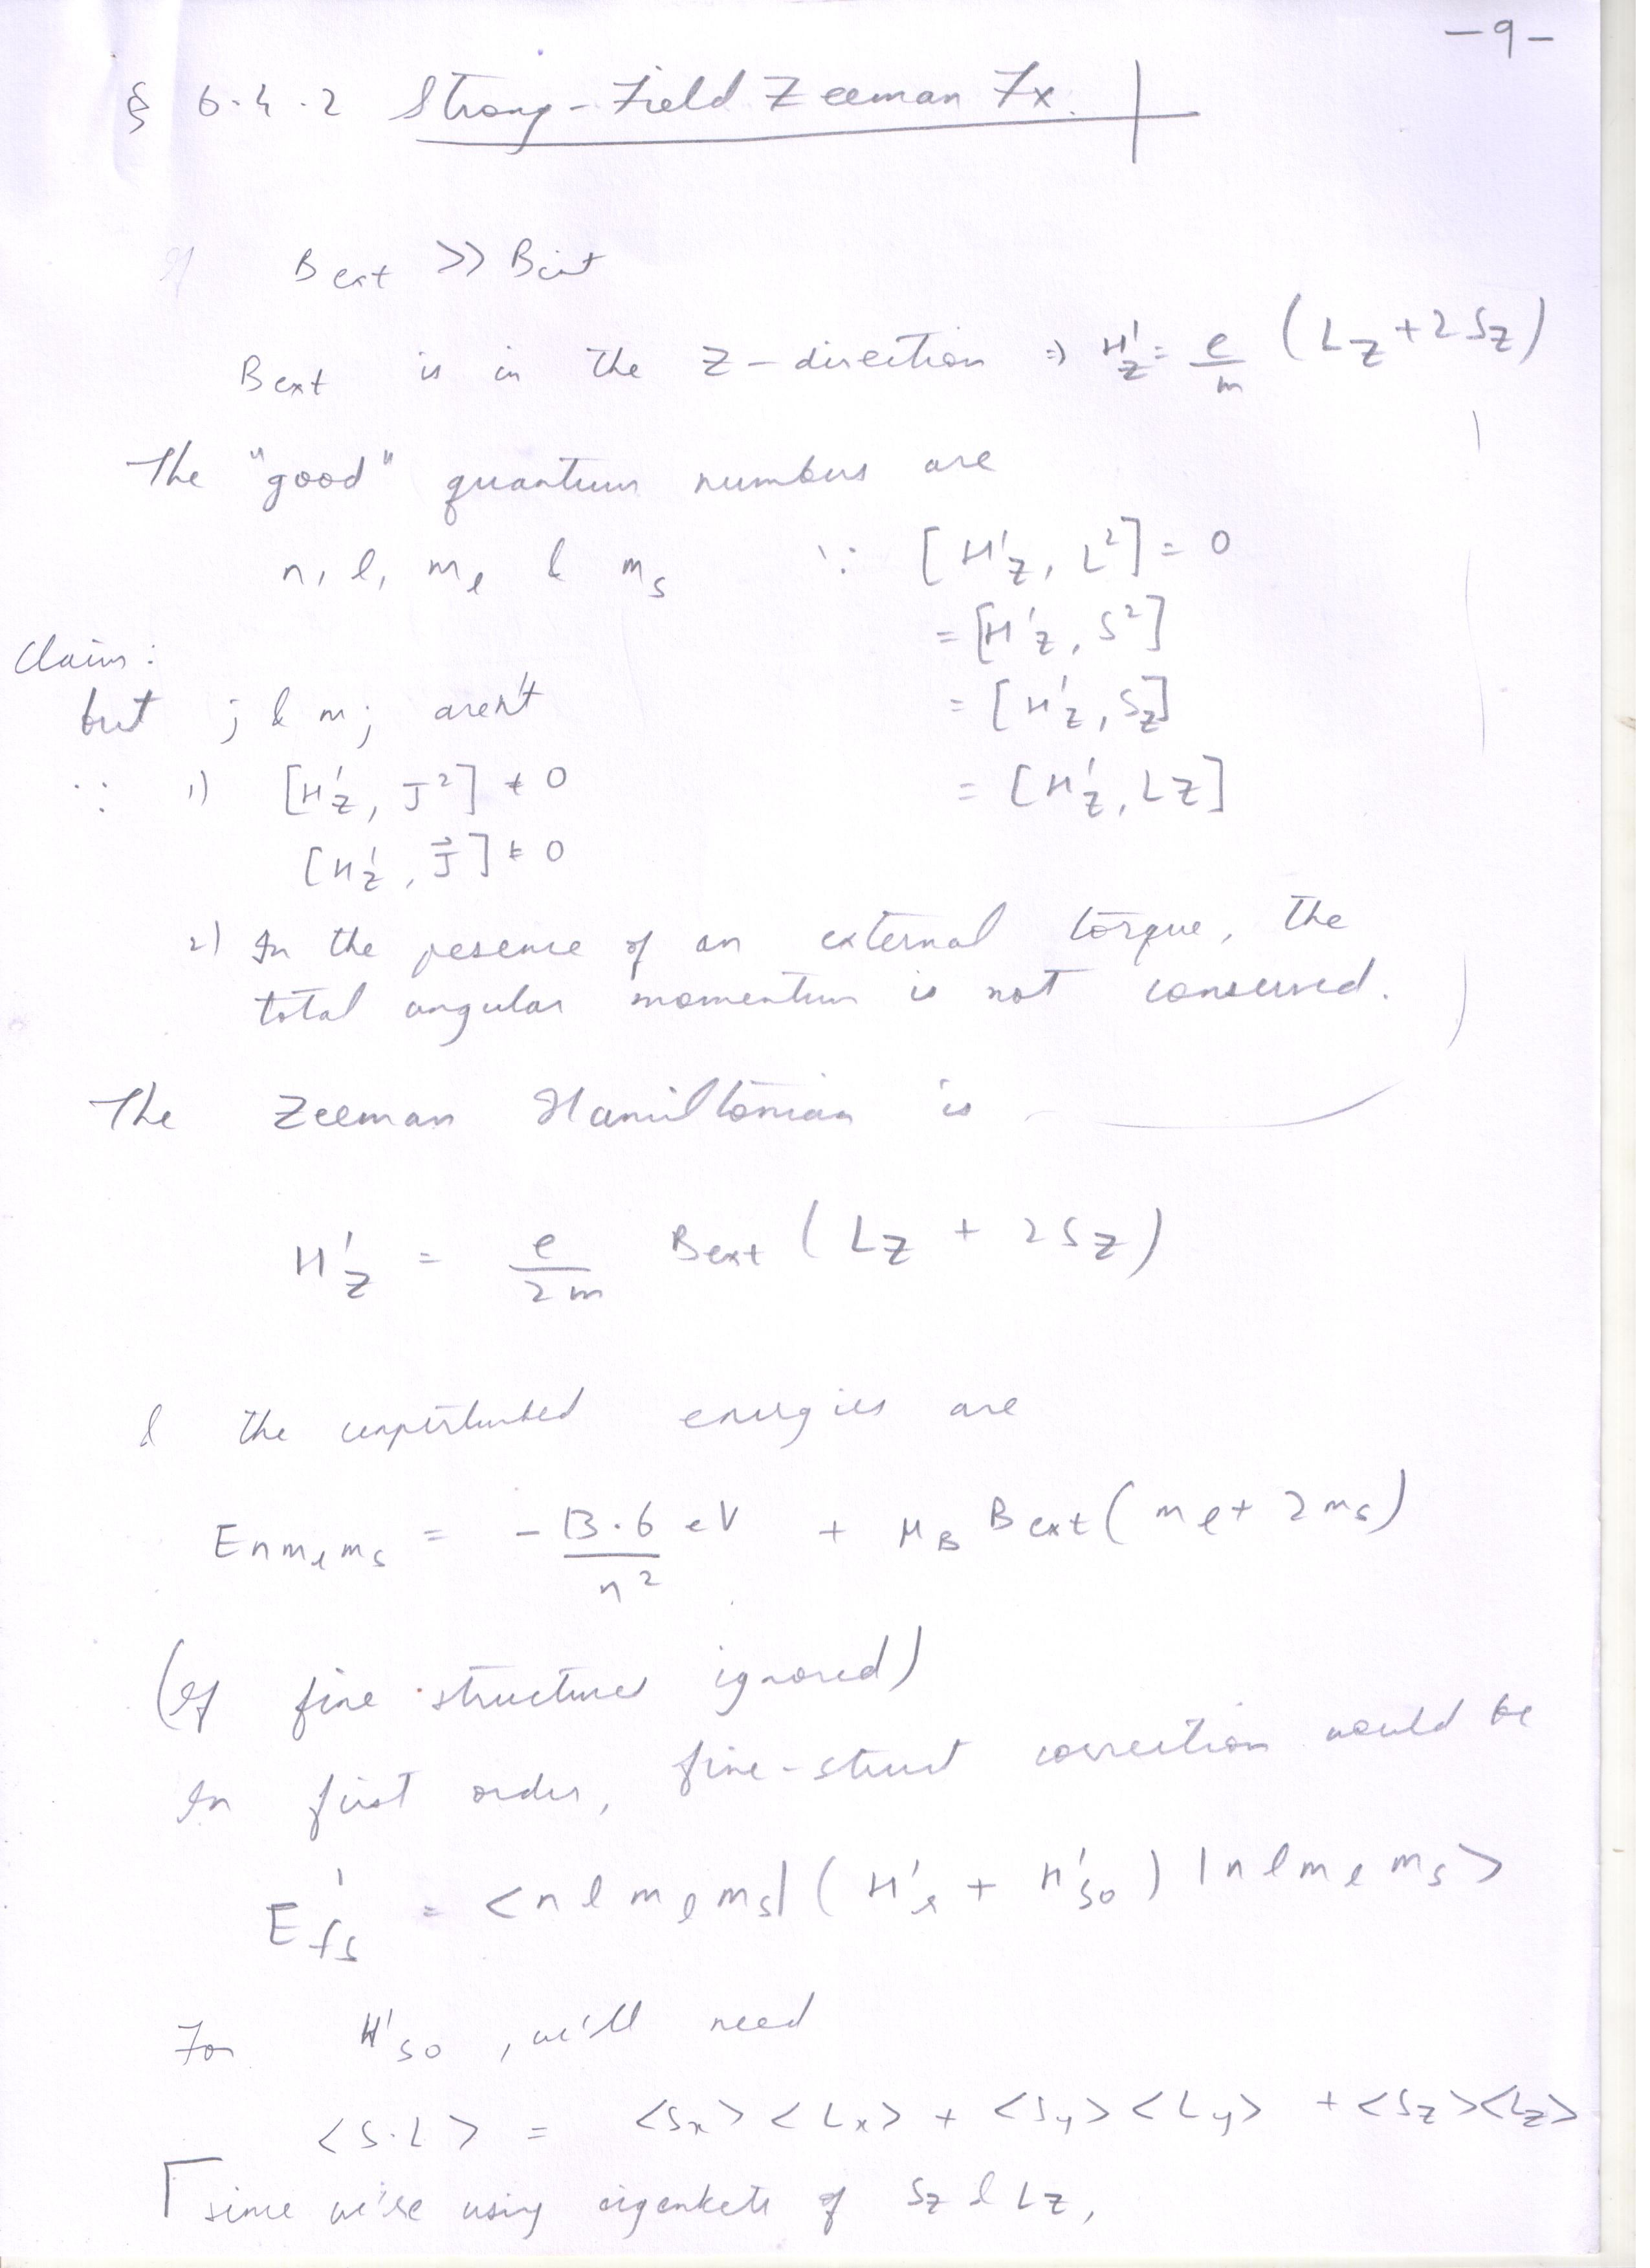 -9-
§ 6.4.2 Strong-Field Zeeman Fx.
If Bext >> Bint
Bext is in the z-direction ⇒ H'z = e/m (Lz + 2Sz)
The "good" quantum numbers are
n, l, ml & ms ∵ [H'z, L²] = 0
= [H'z, S²]
Claim:
but j & mj aren't = [H'z, Sz]
∵ 1) [H'z, J²] ≠ 0 = [H'z, Lz]
[H'z, J⃗] ≠ 0
2) In the presence of an external torque, the
total angular momentum is not conserved.
The Zeeman Hamiltonian is
H'z = e/2m Bext (Lz + 2Sz)
& the unperturbed energies are
Enmlms = -13.6 eV/n² + μB Bext (ml + 2ms)
(If fine structure ignored)
In first order, fine-struct correction would be
E¹fs = <n l ml ms| (H'r + H'so) |n l ml ms>
For H'so, we'll need
<S.L> = <Sx><Lx> + <Sy><Ly> + <Sz><Lz>
since we're using eigenkets of Sz & Lz,